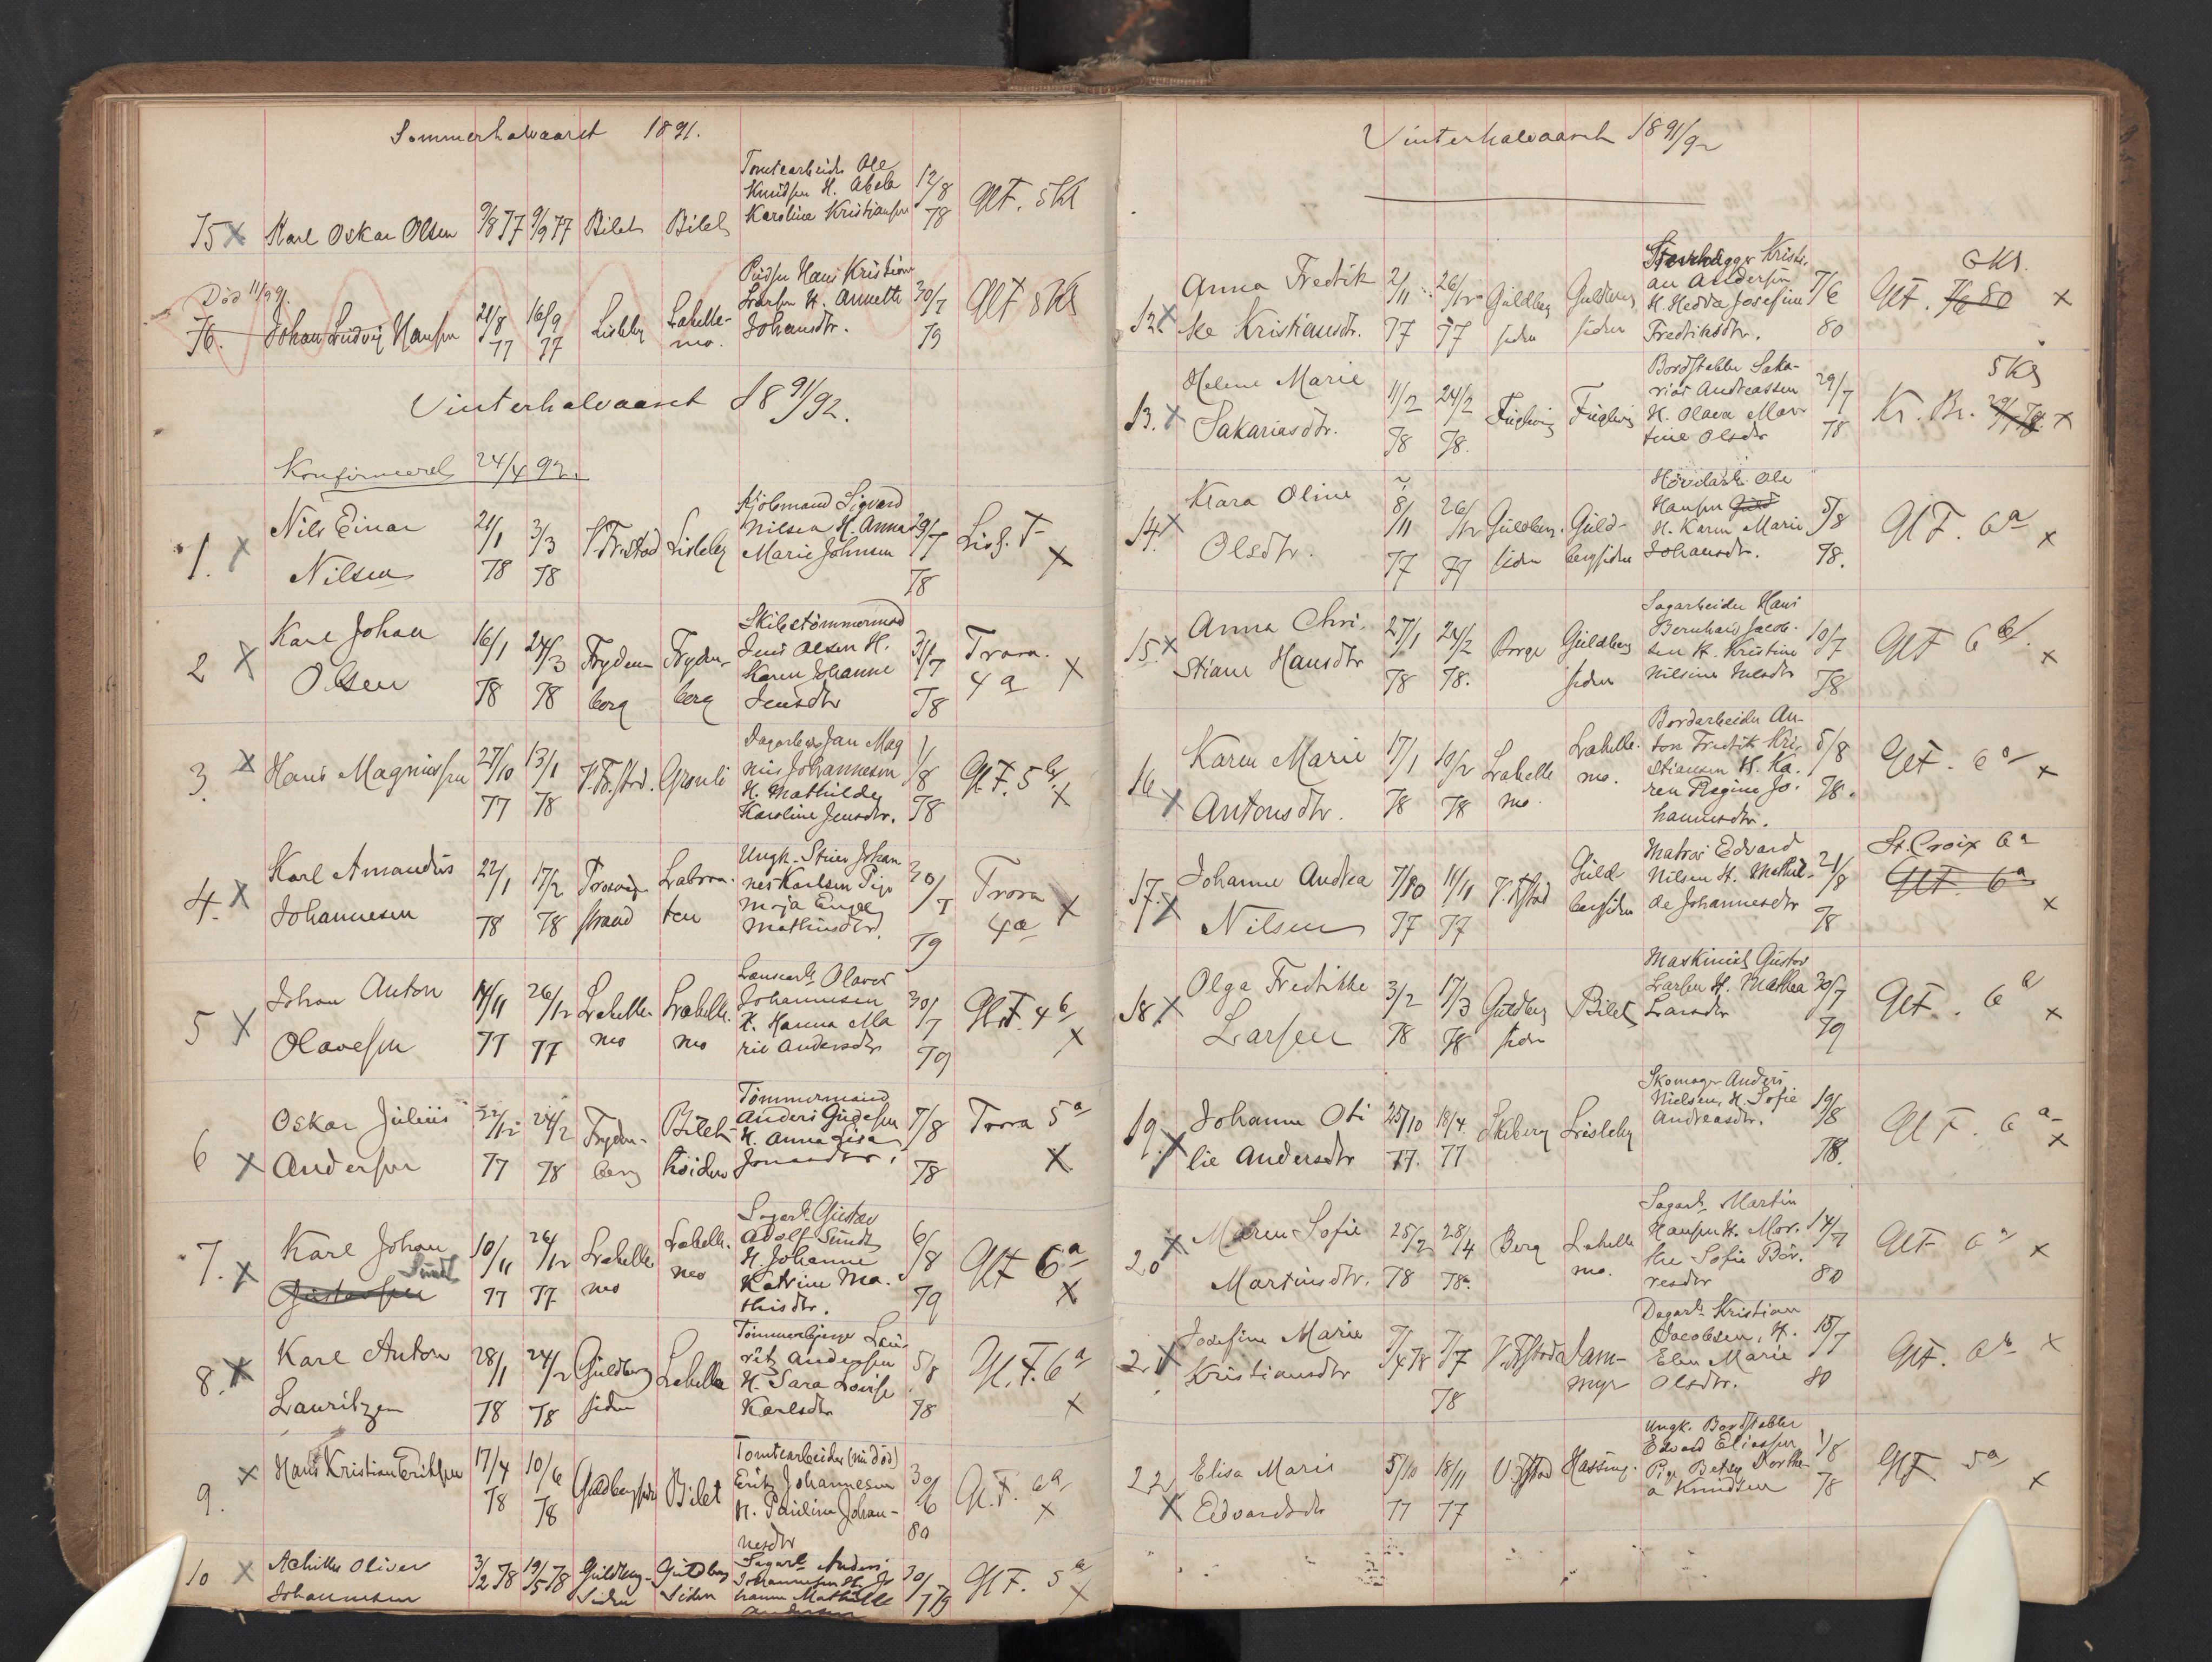 Sommerhalvaaret 1891.
75 x Karl Oskar Olsen 9/8 77 9/9 77 Bilet Bilet Tomtearbeider Ole Knudsen H. Karoline Kristiansen 12/8 78 Gl. F. 5 Kl
Død 11/9 91.
76. Johan Ludvig Hansen 21/8 77 16/9 77 Lisleby Labelle-mo. Hans Kristian Larsen H. Annette Johansdtr. 30/7 79 Gl F 5 Kl
Vinterhalvaaret 1891/92.
Konfirmeret 24/4 92.
1. x Nils Einar Nilsen 21/1 78 3/3 78 V. Fr.stad Lisleby Sjömand Sigvard Nilsen H. Anna Marie Johnsen 29/7 78 Lisl. F x
2 x Karl Johan Olsen 16/1 78 24/3 78 Frydenberg Frydenberg Skibstömmermand Jens Olsen H. Karen Johanne Jensdtr 31/7 78 Trara. 4 a x
3. x Hans Magnussen 27/10 77 13/1 78 V. Fr.stad. Grønli Dagarb. Jan Magnus Johannesen H. Mathilde Karoline Jensdtr. 1/8 78 Gl. F. 5 b. x
4. x Karl Amandus Johannesen 22/1 78 17/2 78 Trosvigstrand Labraaten Ungk. Johannes Karlsen Pige Maja Engel Mathiasdtr. 30/7 79 Trara 4 a x
5 x Johan Anton Olavesen 14/11 77 26/12 77 Labellemo Labellemo Olaves Johannesen H. Hanna Marie Andersdtr 30/7 79 Gl. F. 4 b x
6 x Oskar Julius Andersen 22/12 77 24/2 78 Frydenberg Bilethöiden Tömmermand Anders Gudesen H. Anna Lisa Jonasdtr. 7/8 78 Trara 5 a x
7. x Karl Johan Gustavsen Sundt 10/11 77 26/12 77 Labellemo Labellemo Sagarb. Gustav Adolf Sundt H. Johanne Katrine Mathisdtr. 6/8 79 Gl F 6 a x
8. x Karl Anton Lauritzen 28/1 78 24/2 78 Guldbergsiden Labelle Lauritz Andersen H. Sara Lovise Karlsdtr 5/8 78 Gl. F. 6 a x
9. x Hans Kristian Eriksen 17/4 78 10/6 78 Guldbergsiden Bilet Tomtearbeider (nu död) Erik Johannesen H. Pauline Johannesdtr 30/6 80 Gl. F. 6 a x
10 x Achilles Oliver Johannesen 3/2 78 19/5 78 Guldbergsiden Guldbergsiden Sagarb. Anders Johannesen H. Johanne Mathilde Andersen 30/7 79 Gl F. 5 a x
Vinterhalvaaret 1891/92
12. x Anna Fredrikke Kristiansdtr. 2/11 77 26/12 77 Guldbergsiden Guldbergsiden Stenhugger Kristian Andersen H. Hedda Josefine Fredriksdtr. 7/6 80 Gl F. 7/6 80 6 Kl. x
13. x Helene Marie Sakariasdtr. 11/2 78 24/2 78. Fuglevig Fuglevig Bordstabler Sakarias Andreassen H. Olava Martine Olsdtr 29/7 78 Kr. Br. 29/7 78. 5 Kl x
14. x Klara Oline Olsdtr. 8/11 77 26/12 77 Guldbergsiden Guldbergsiden Hövlarb. Ole Hansen H. Karen Marie Johansdtr. 5/8 78. Gl F. 6 a x
15. x Anna Christiane Hansdtr 27/1 78 24/2 78. Borge Guldbergsiden Sagarbeider Hans Bernhard Jacobsen H. Kristine Nilsine Nilsdtr 10/7 78 Gl F 6 b. x
16 x Karen Marie Antonsdtr. 17/1 78 10/2 78 Labellemo. Labellemo. Bordarbeider Anton Fredrik Kristiansen H. Karen Regine Johannesdtr. 5/8 78. Gl F. 6 a x
17. x Johanne Andrea Nilsen 7/10 77 11/11 77 V. Fr.stad Guldbergsiden Matros Edvard Nilsen H. Mathilde Johannesdtr 21/8 78 St. Croix 6 a Gl F. 6 a x
18. x Olga Fredrikke Larsen 3/2 78 17/3 78 Guldbergsiden Bilet Maskinist Gustav Larsen H. Mathea Larsdtr 30/7 79 Gl F. 6 a x
19. x Johanne Otilie Andersdtr 25/10 77. 18/4 77 Skiberg Lisleby Skomager Anders Nielsen, H. Sofie Andreasdtr. 19/8 78. Gl F. 6 a x
20 x Maren Sofie Martinsdtr. 25/2 78 28/4 78. Berg Labellemo. Sagarb. Martin Hansen H. Marthe Sofie Börresdtr 14/7 80 Gl F 6 a x
21 x Josefine Marie Kristiansdtr 7/4 78 7/7 78 V. Fr.stad Dammyr Dagarb. Kristian Jacobsen, H. Elen Marie Olsdtr. 15/7 80 Gl F. 6 b x
22 x Elisa Marie Edvardsdtr 5/10 77 18/11 77 V. Fr.stad Hassing. Ungk. Bordstabler Edvard Eliassen Pige Betsy Dorthea Knudsen 1/8 78 Gl F. 5 a x